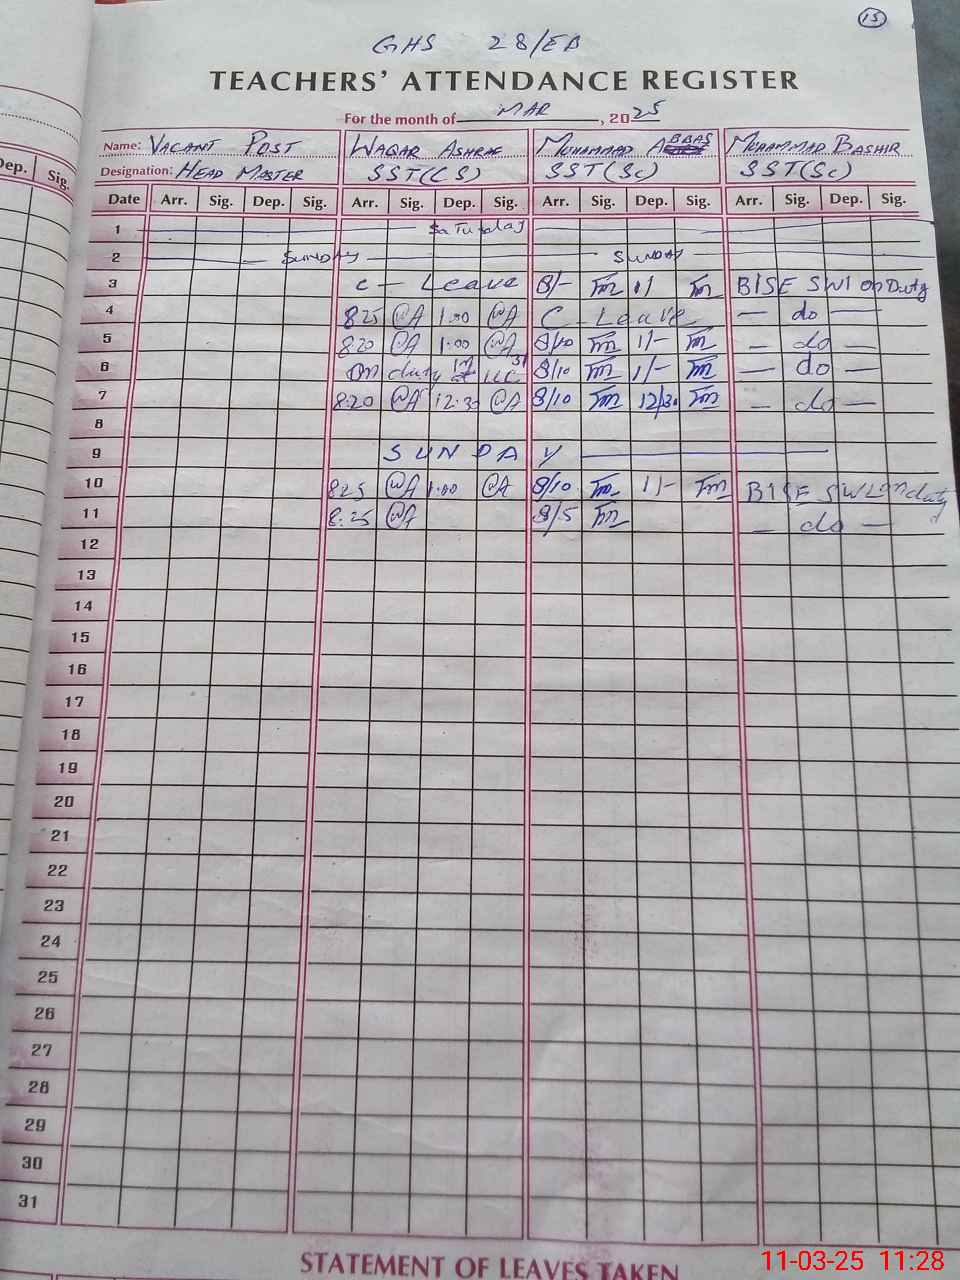 15
GHS 28/EB
TEACHERS' ATTENDANCE REGISTER
For the month of MAR, 2025
Name: VACANT POST WAQAR ASHRAF MUHAMMAD ABBAS MUHAMMAD BASHIR
Designation: HEAD MASTER SST(CS) SST(Sc) SST(Sc)
Dep. Sig. Date Arr. Sig. Dep. Sig. Arr. Sig. Dep. Sig. Arr. Sig. Dep. Sig. Arr. Sig. Dep. Sig.
1 Saturday
2 SUNDAY SUNDAY
3 C - Leave 8/- 1/ BISE SWL on Duty
4 8:25 1:00 C - Leave — do —
5 8:20 1:00 8/10 1/- — do —
6 On duty 8/10 1/- — do —
7 8:20 12:30 8/10 12/30 — do —
8
9 SUNDAY
10 8:25 1:00 8/10 1/- BISE SWL on duty
11 8:25 8/5 — do —
12
13
14
15
16
17
18
19
20
21
22
23
24
25
26
27
28
29
30
31
STATEMENT OF LEAVES TAKEN
11-03-25 11:28